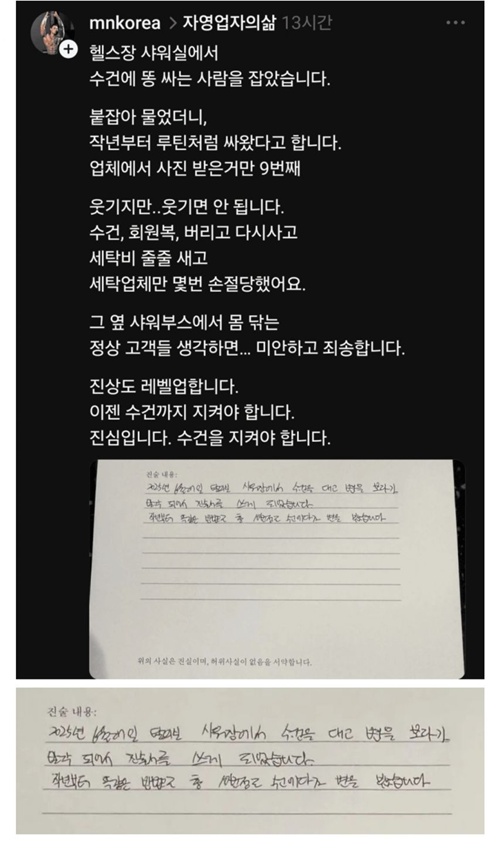 mnkorea > 자영업자의삶 13시간
헬스장 샤워실에서
수건에 똥 싸는 사람을 잡았습니다.
붙잡아 물었더니,
작년부터 루틴처럼 싸왔다고 합니다.
업체에서 사진 받은거만 9번째
웃기지만..웃기면 안 됩니다.
수건, 회원복, 버리고 다시사고
세탁비 줄줄 새고
세탁업체만 몇번 손절당했어요.
그 옆 샤워부스에서 몸 닦는
정상 고객들 생각하면... 미안하고 죄송합니다.
진상도 레벨업합니다.
이젠 수건까지 지켜야 합니다.
진심입니다. 수건을 지켜야 합니다.
진술 내용:
2025년 샤워장에서 수건을 대고 변을 보다가
진술서를 쓰게 되었습니다.
작년부터 똑같은 방법으로 총 수건에다가 변을 봤습니다
위의 사실은 진실이며, 허위사실이 없음을 서약합니다.
진술 내용:
2025년 샤워장에서 수건을 대고 변을 보다가
진술서를 쓰게 되었습니다.
작년부터 똑같은 방법으로 총 수건에다가 변을 봤습니다